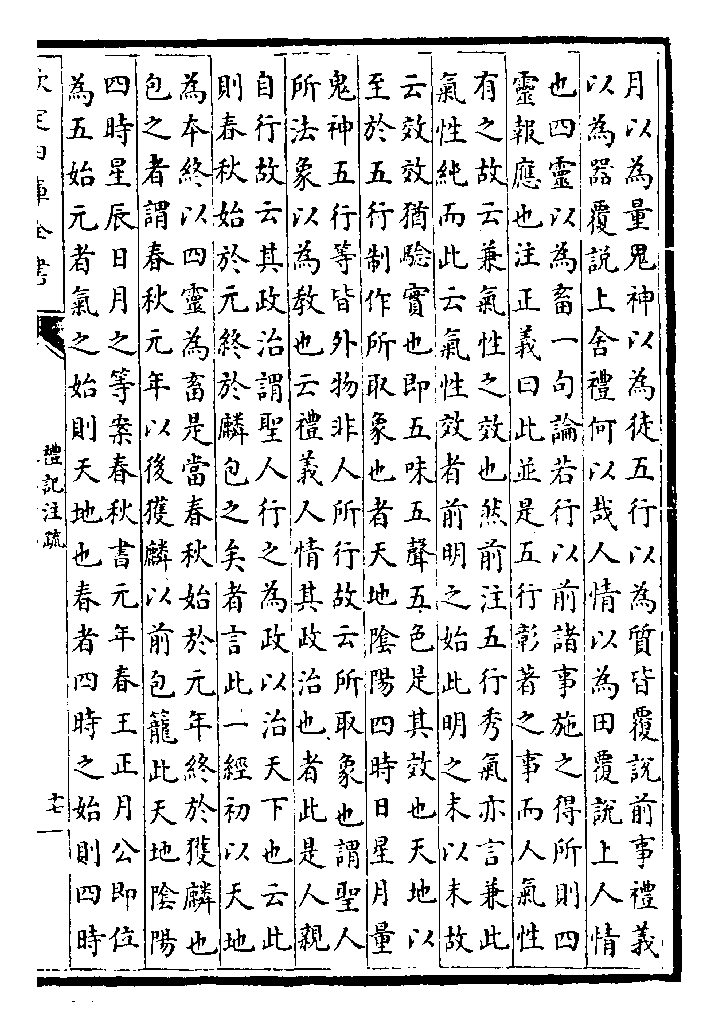 月以為量鬼神以為徒五行以為質皆覆說前事禮義
以為器覆說上舍禮何以哉人情以為田覆說上人情
也四靈以為畜一句論若行以前諸事施之得所則四
靈報應也注正義曰此並是五行彰著之事而人氣性
有之故云兼氣性之效也然前注五行秀氣亦言兼此
氣性純而此云氣性效者前明之始此明之末以末故
云效效猶驗實也即五味五聲五色是其效也天地以
至於五行制作所取象也者天地隂陽四時日星月量
鬼神五行等皆外物非人所行故云所取象也謂聖人
所法象以為教也云禮義人情其政治也者此是人親
自行故云其政治謂聖人行之為政以治天下也云此
則春秋始於元終於麟包之矣者言此一經初以天地
為本終以四靈為畜是當春秋始於元年終於獲麟也
包之者謂春秋元年以後獲麟以前包籠此天地隂陽
四時星辰日月之等案春秋書元年春王正月公即位
為五始元者氣之始則天地也春者四時之始則四時
欽定四庫全書
禮記注疏
十七